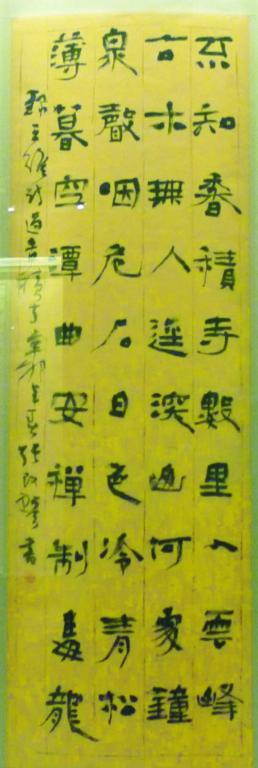 不知香積寺數里入雲峰
古木無人逕深山何處鐘
泉聲咽危石日色冷青松
薄暮空潭曲安禪制毒龍
錄王維詩過香積寺辛卯年春張改琴書